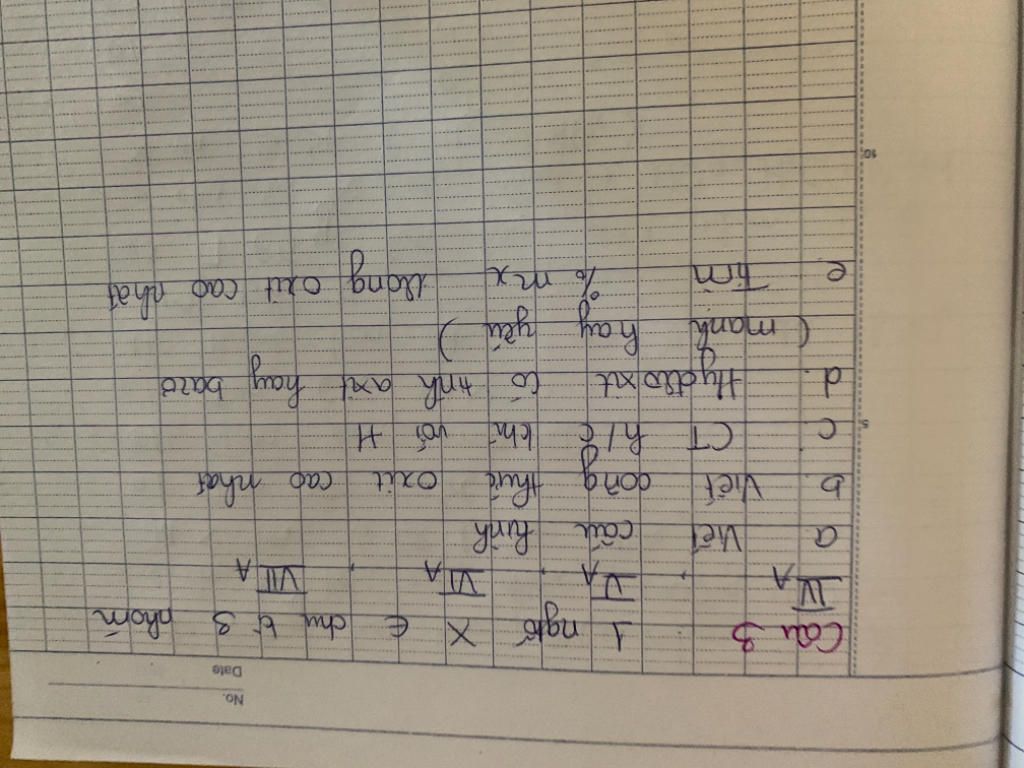 No.
Date
Câu 3 1 ngtố X ∈ chu kì 3 nhóm
IVA, VA, VIA, VIIA
a Viết cấu hình
b. Viết công thức oxit cao nhất
c. CT h/c khí với H
d. Hyđroxit có tính axit hay bazơ
(mạnh hay yếu)
e. Tìm % mx trong oxit cao nhất
5
10